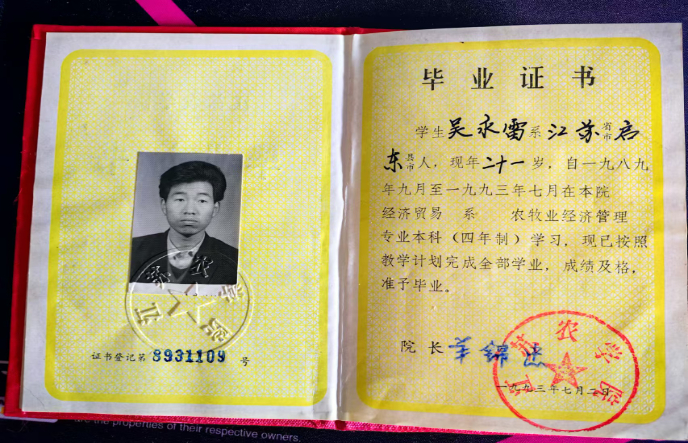 证书登记第8931109号
毕业证书
学生吴永雷系江苏省市启
东县市人，现年二十一岁，自一九八九
年九月至一九九三年七月在本院
经济贸易 系 农牧业经济管理
专业本科（四年制）学习，现已按照
教学计划完成全部学业，成绩及格，
准予毕业。
院长
农学院
一九九三年七月二日
are the properties of their respective owners.